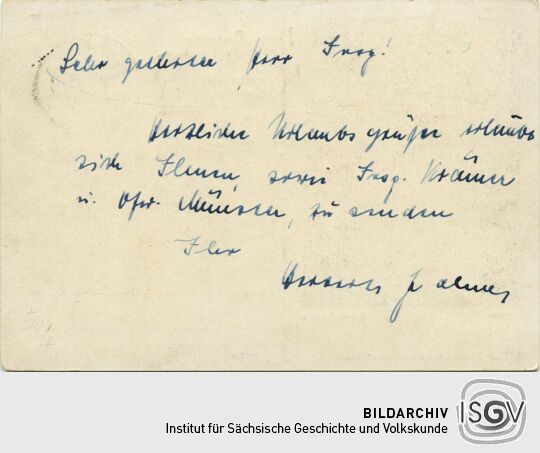 Sehr geehrter Herr Insp!
Herzliche Urlaubsgrüße erlaubt
sich Ihnen, sowie Insp. Krämer
u. Ofw. Münster, zu senden
Ihr
Herbert
BILDARCHIV
Institut für Sächsische Geschichte und Volkskunde
ISGV